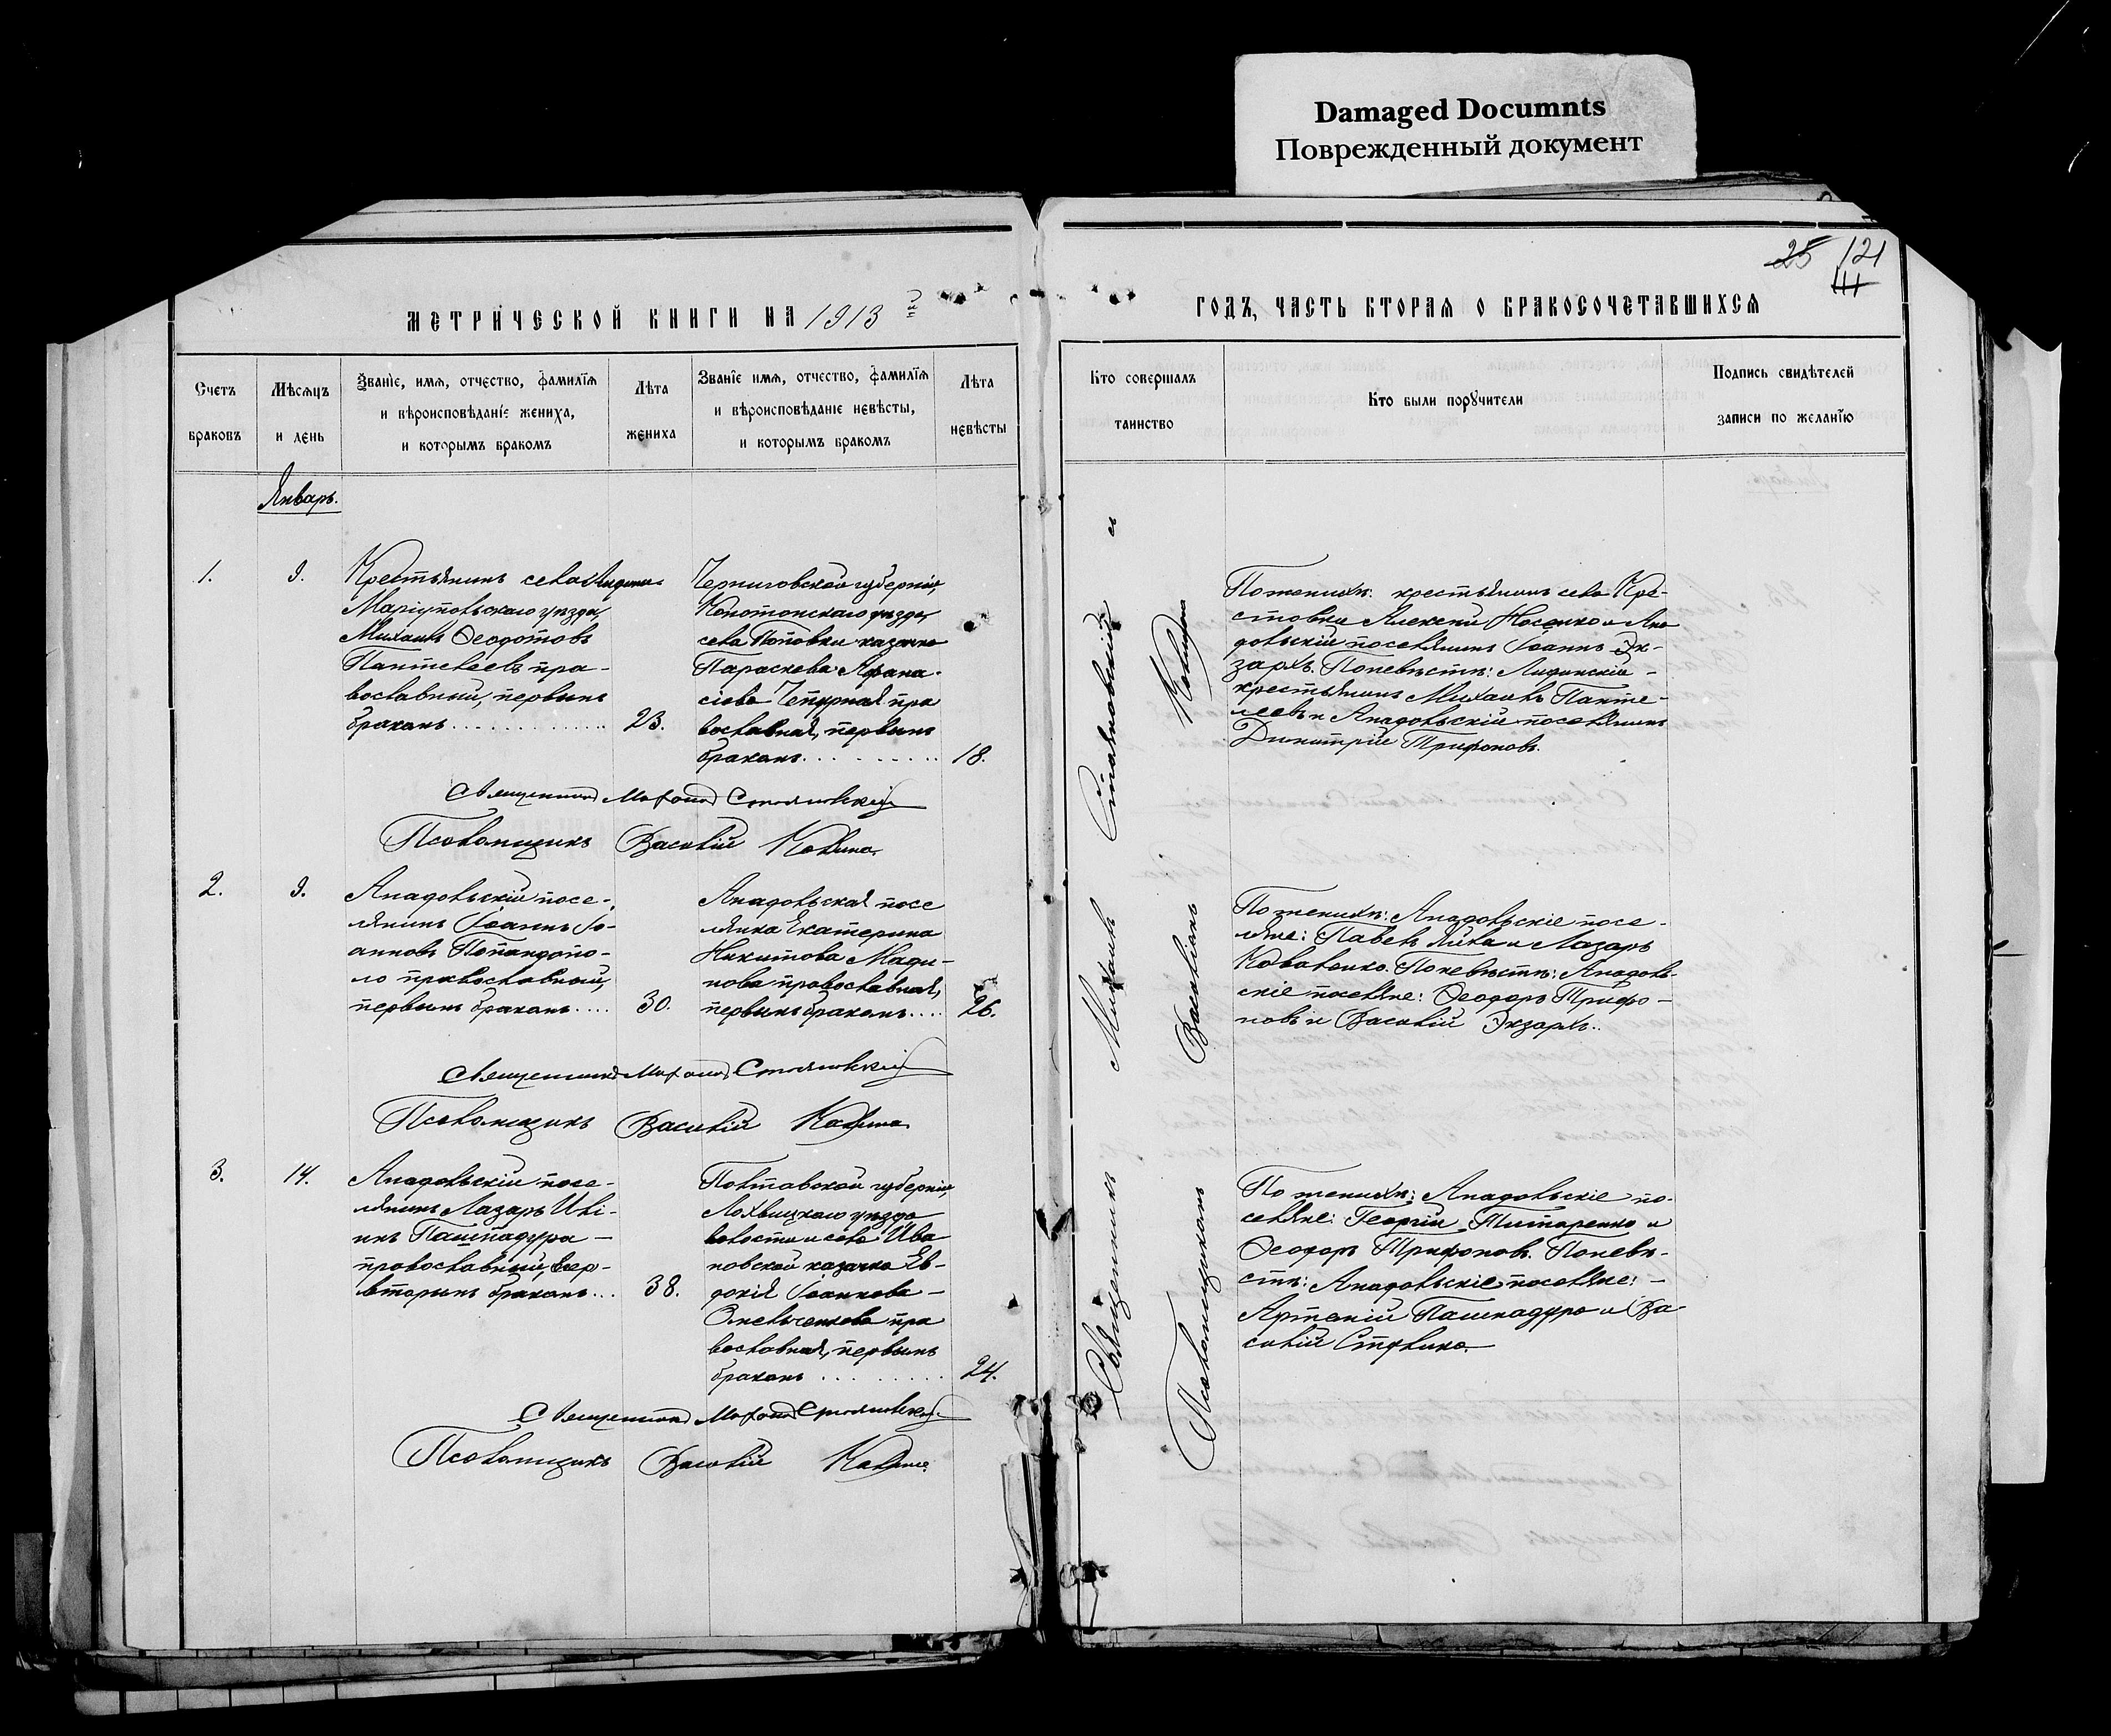 Damaged Documnts
Поврежденный документ
25 121
111
МЕТРИЧЕСКОЙ КНИГИ НА 1913 й
ГОДЪ, ЧАСТЬ ВТОРАЯ О БРАКОСОЧЕТАВШИХСЯ
Счетъ браковъ
Мѣсяцъ и день
Званіе, имя, отчество, фамилія
и вѣроисповѣданіе жениха,
и которымъ бракомъ
Лѣта жениха
Званіе имя, отчество, фамилія
и вѣроисповѣданіе невѣсты,
и которымъ бракомъ
Лѣта невѣсты
Кто совершалъ таинство
Кто были поручители
Подпись свидѣтелей
записи по желанію
Январь.
1.
9.
Крестьянинъ села
Маріупольскаго уѣзда,
Михаилъ Ѳеодотовъ
Пантелеевъ пра-
вославный, первымъ
бракомъ
23.
Черниговской губерніи,
Конотопскаго уѣзда,
села Поповки казачка
Параскева Афана-
сіева Чепурная пра
вославная, первымъ
бракомъ
18.
По женихѣ: крестьянинъ села Кре-
стовки Алексѣй Носенко и Ана
дольскій поселянинъ Іоаннъ Эк-
зархъ. По невѣстѣ: Лидинскій
крестьянинъ Михаилъ Панте-
леевъ и Анадольскій поселянинъ
Димитрій Трифоновъ.
Священникъ Михаилъ Стояновскій
Псаломщикъ Василій Калина.
2.
9.
Анадольскій посе-
лянинъ Іоаннъ Іо-
анновъ Попандопо-
ло православный,
первымъ бракомъ
30.
Анадольская посе
лянка Екатерина
Никитова Мади-
нова православная,
первымъ бракомъ
26.
По женихѣ: Анадольскіе посе-
ляне: Павелъ и Лазарь
Коваленко. По невѣстѣ: Анадоль-
скіе поселяне: Ѳеодоръ Трифо-
новъ и Василій Экзархъ.
Священникъ Михаилъ Стояновскій
Псаломщикъ Василій Калина
3.
14.
Анадольскій посе-
лянинъ Лазарь Иві-
инъ Пашпадура
православный,
вторымъ бракомъ
38.
Полтавской губерніи,
Лохвицкаго уѣзда
волости и села Ива
новской казачка Ев-
докія Іоаннова
Омельченкова пра
вославная, первымъ
бракомъ
24.
По женихѣ: Анадольскіе по-
селяне: Георгій Титаренко и
Ѳеодоръ Трифоновъ. По невѣ-
стѣ: Анадольскіе поселяне:
Артемій Пашпадура и Ва
силій
Священникъ Михаилъ Стояновскій
Псаломщикъ Василій Калина
Священникъ Михаилъ Стояновскій и
Псаломщикомъ Василіемъ Калиною